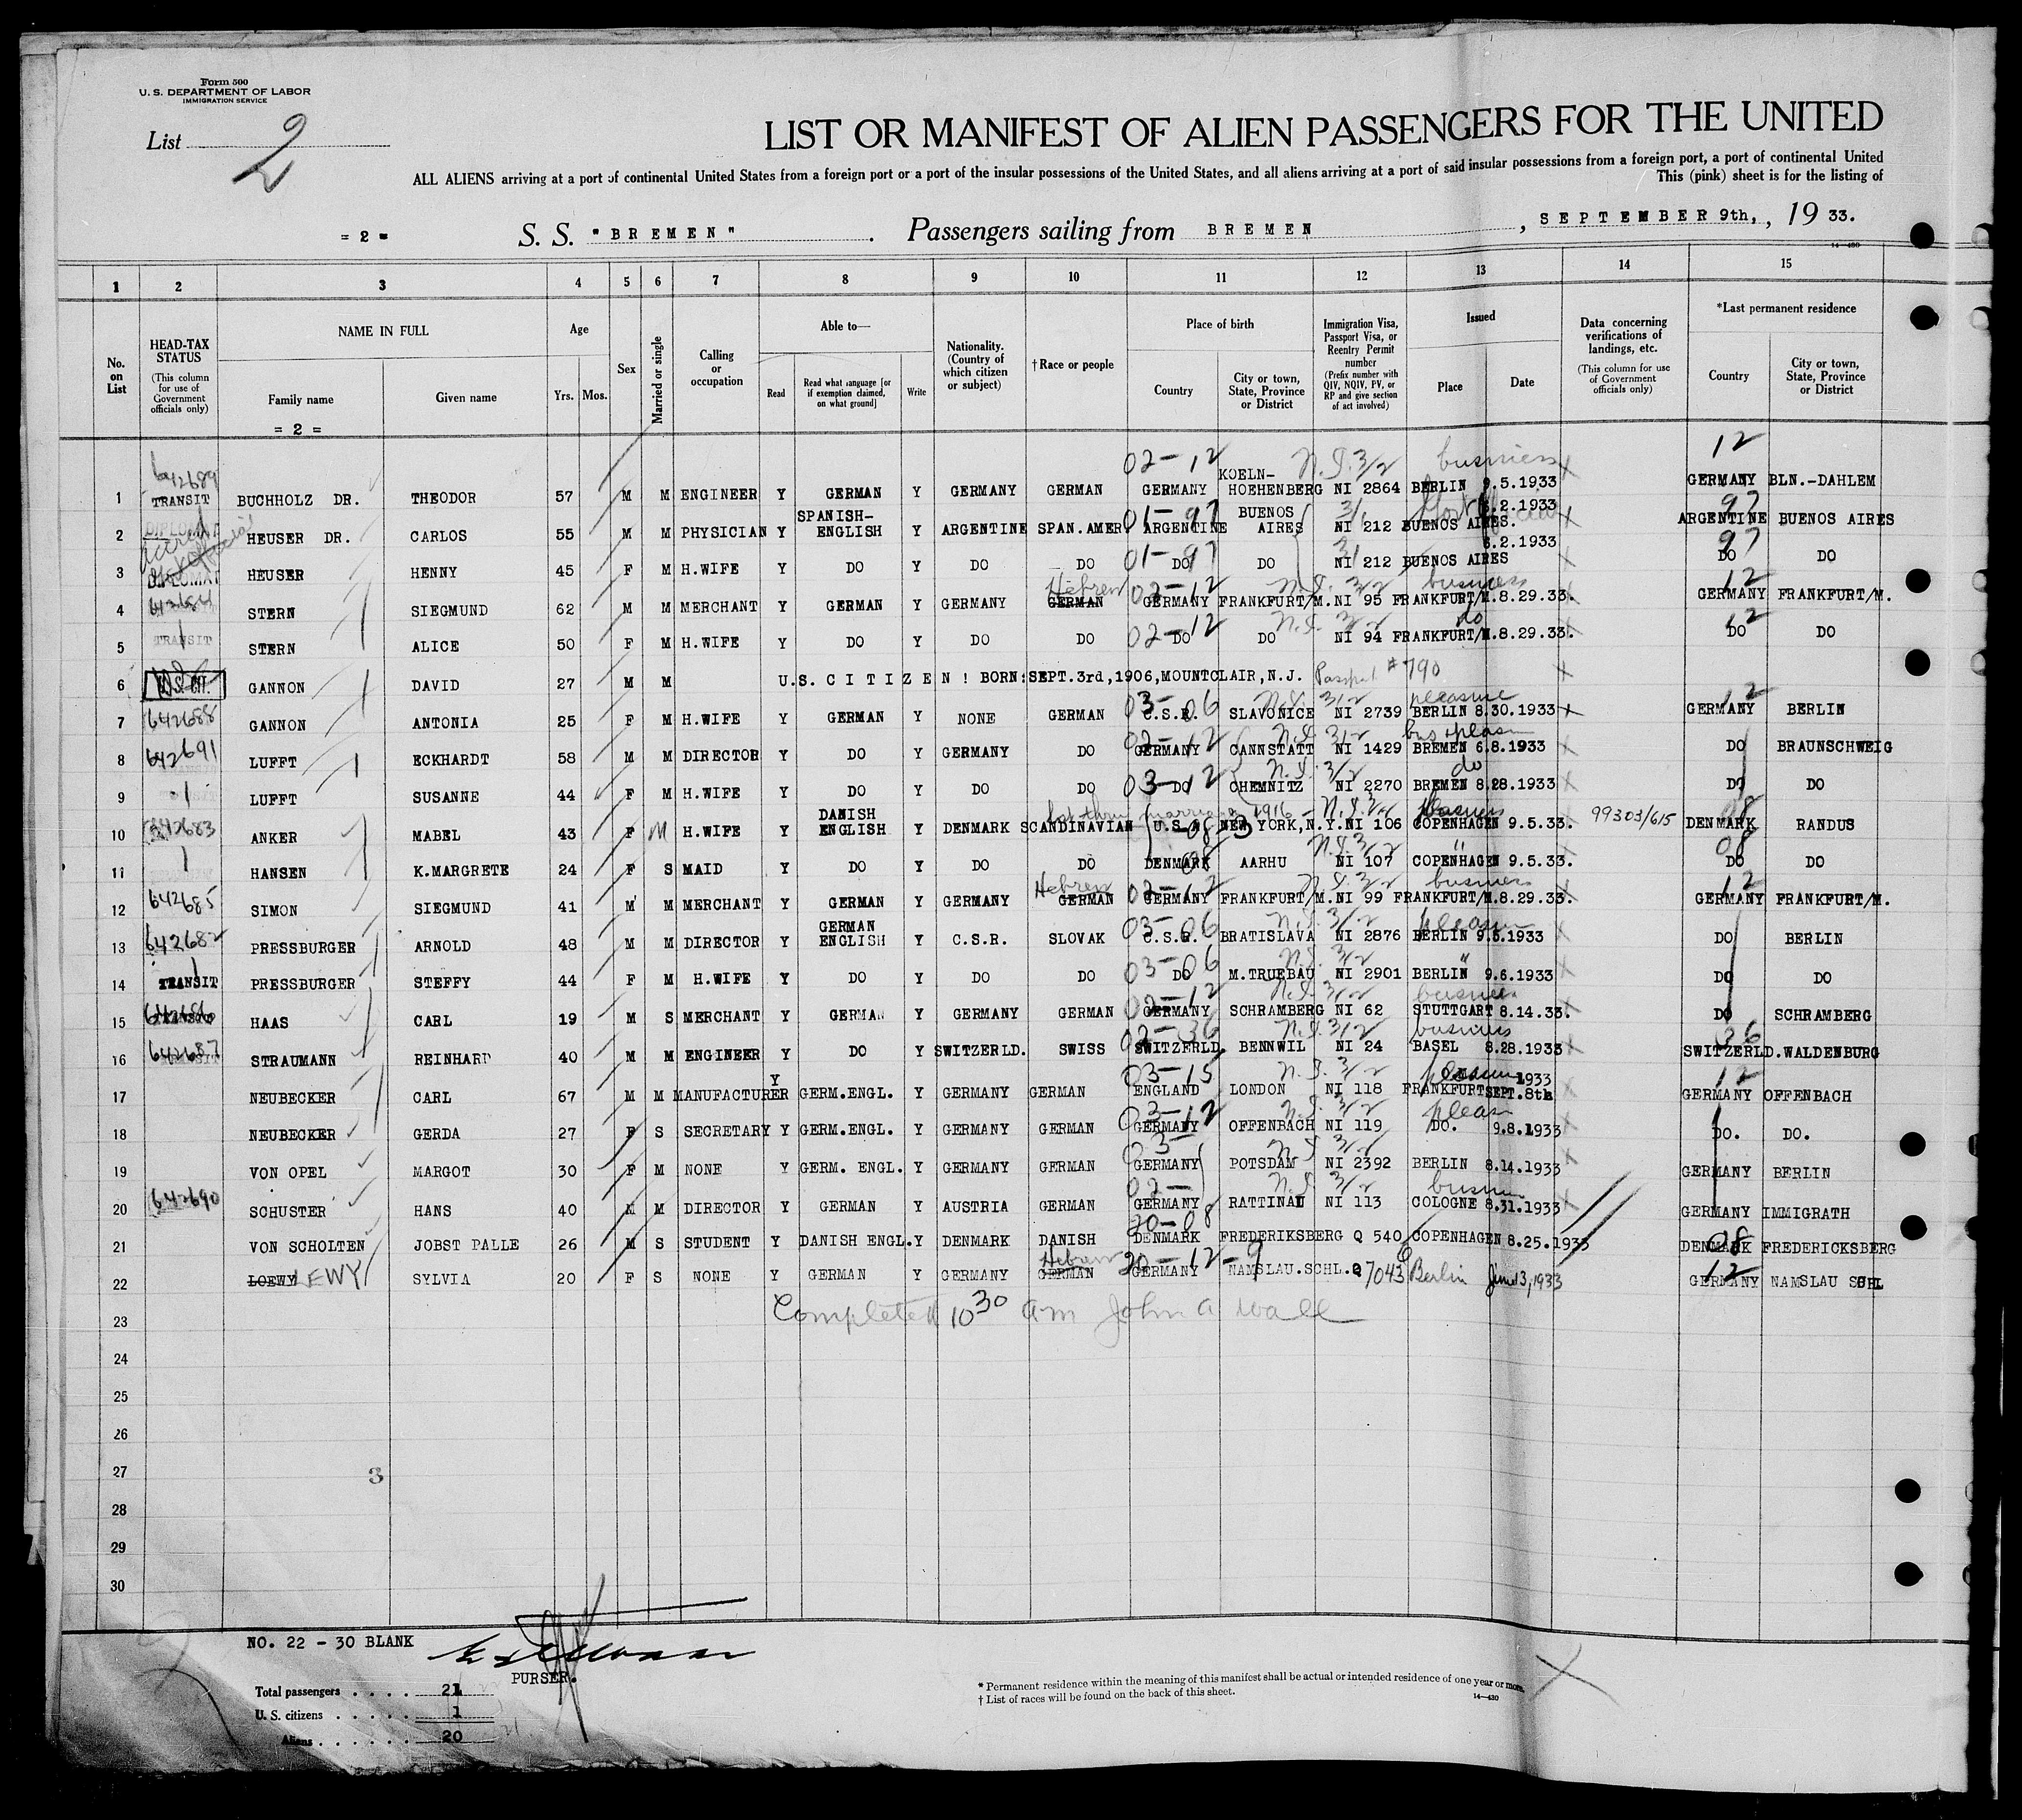 Form 500
U. S. DEPARTMENT OF LABOR
IMMIGRATION SERVICE
List 2
LIST OR MANIFEST OF ALIEN PASSENGERS FOR THE UNITED
ALL ALIENS arriving at a port of continental United States from a foreign port or a port of the insular possessions of the United States, and all aliens arriving at a port of said insular possessions from a foreign port, a port of continental United
This (pink) sheet is for the listing of
= 2 = S. S. "BREMEN" . Passengers sailing from BREMEN , SEPTEMBER 9th, , 19 33.
14—430
1 2 3 4 5 6 7 8 9 10 11 12 13 14 15
No. on List
HEAD-TAX STATUS (This column for use of Government officials only)
NAME IN FULL
Family name
Given name
= 2 =
Age
Yrs. Mos.
Sex
Married or single
Calling or occupation
Able to—
Read
Read what language [or if exemption claimed, on what ground]
Write
Nationality. (Country of which citizen or subject)
†Race or people
Place of birth
Country
City or town, State, Province or District
Immigration Visa, Passport Visa, or Reentry Permit number (Prefix number with QIV, NQIV, PV, or RP and give section of act involved)
Issued
Place
Date
Data concerning verifications of landings, etc. (This column for use of Government officials only)
*Last permanent residence
Country
City or town, State, Province or District
642689 02-12 N.I. 3/2 business 12
1 TRANSIT BUCHHOLZ DR. THEODOR 57 M M ENGINEER Y GERMAN Y GERMANY GERMAN GERMANY KOELN-HOEHENBERG NI 2864 BERLIN 9.5.1933 GERMANY BLN.-DAHLEM
01-97 3/1 97
2 DIPLOMAT HEUSER DR. CARLOS 55 M M PHYSICIAN Y SPANISH-ENGLISH Y ARGENTINE SPAN.AMER. ARGENTINE BUENOS AIRES NI 212 BUENOS AIRES. 6.2.1933 ARGENTINE BUENOS AIRES
01-97 3/1 97
3 DIPLOMAT HEUSER HENNY 45 F M H.WIFE Y DO Y DO DO DO DO NI 212 BUENOS AIRES 6.2.1933 DO DO
Hebrew 02-12 N.I. 3/2 business 12
4 STERN SIEGMUND 62 M M MERCHANT Y GERMAN Y GERMANY GERMAN GERMANY FRANKFURT/M. NI 95 FRANKFURT/M. 8.29.33. GERMANY FRANKFURT/M.
02-12 N.I. 3/2 do 12
5 TRANSIT STERN ALICE 50 F M H.WIFE Y DO Y DO DO DO DO NI 94 FRANKFURT/M. 8.29.33. DO DO
6 U.S. CIT. GANNON DAVID 27 M M U.S. CITIZEN! BORN:SEPT.3rd,1906,MOUNTCLAIR,N.J. Passport #790
03-06 N.I. 3/2 pleasure 12
7 642688 GANNON ANTONIA 25 F M H.WIFE Y GERMAN Y NONE GERMAN C.S.R. SLAVONICE NI 2739 BERLIN 8.30.1933 GERMANY BERLIN
02-12 N.I. 3/2 bus + pleasure
8 642691 LUFFT ECKHARDT 58 M M DIRECTOR Y DO Y GERMANY DO GERMANY CANNSTATT NI 1429 BREMEN 6.8.1933 DO BRAUNSCHWEIG
03-12 N.I. 3/2 do
9 LUFFT SUSANNE 44 F M H.WIFE Y DO Y DO DO DO CHEMNITZ NI 2270 BREMEN 8.28.1933 DO DO
lost thru marriage 1916 - N.I. 3/2
10 642683 ANKER MABEL 43 F M H.WIFE Y DANISH ENGLISH Y DENMARK SCANDINAVIAN U.S.A. NEW YORK, N.Y. NI 106 COPENHAGEN 9.5.33. 99303/615 DENMARK RANDUS
N.I. 3/2 " 08
11 HANSEN K.MARGRETE 24 F S MAID Y DO Y DO DO DENMARK AARHU NI 107 COPENHAGEN 9.5.33. DO DO
Hebrew 02-12 N.I. 3/2 business 12
12 642685 SIMON SIEGMUND 41 M M MERCHANT Y GERMAN Y GERMANY GERMAN GERMANY FRANKFURT/M. NI 99 FRANKFURT/M. 8.29.33. GERMANY FRANKFURT/M.
03-06 N.I. 3/2 pleasure
13 642682 PRESSBURGER ARNOLD 48 M M DIRECTOR Y GERMAN ENGLISH Y C.S.R. SLOVAK C.S.R. BRATISLAVA NI 2876 BERLIN 9.5.1933 DO BERLIN
03-06 N.I. 3/2 "
14 TRANSIT PRESSBURGER STEFFY 44 F M H.WIFE Y DO Y DO DO DO M.TRUEBAU NI 2901 BERLIN 9.6.1933 DO DO
02-12 N.I. 3/2 business
15 642686 HAAS CARL 19 M S MERCHANT Y GERMAN Y GERMANY GERMAN GERMANY SCHRAMBERG NI 62 STUTTGART 8.14.33. DO SCHRAMBERG
02-36 N.I. 3/2 business 36
16 642687 STRAUMANN REINHARD 40 M M ENGINEER Y DO Y SWITZERLD. SWISS SWITZERLD BENNWIL NI 24 BASEL 8.28.1933 SWITZERLD. WALDENBURG
03-15 N.I. 3/2 pleasure 12
17 NEUBECKER CARL 67 M M MANUFACTURER Y GERM.ENGL. Y GERMANY GERMAN ENGLAND LONDON NI 118 FRANKFURT SEPT.8th 1933 GERMANY OFFENBACH
03-12 N.I. 3/2 pleas
18 NEUBECKER GERDA 27 F S SECRETARY Y GERM.ENGL. Y GERMANY GERMAN GERMANY OFFENBACH NI 119 DO. 9.8.1933 DO. DO.
03- N.I. 3/2
19 VON OPEL MARGOT 30 F M NONE Y GERM. ENGL. Y GERMANY GERMAN GERMANY POTSDAM NI 2392 BERLIN 8.14.1933 GERMANY BERLIN
02- N.I. 3/2 busin
20 642690 SCHUSTER HANS 40 M M DIRECTOR Y GERMAN Y AUSTRIA GERMAN GERMANY RATTINAU NI 113 COLOGNE 8.31.1933 GERMANY IMMIGRATH
20-08 08
21 VON SCHOLTEN JOBST PALLE 26 M S STUDENT Y DANISH ENGL. Y DENMARK DANISH DENMARK FREDERIKSBERG Q 540 COPENHAGEN 8.25.1933 DENMARK FREDERICKSBERG
Hebrew 20-12-9 12
22 LOEWY LEWY SYLVIA 20 F S NONE Y GERMAN Y GERMANY GERMAN GERMANY NAMSLAU.SCHL. Q 7043 Berlin June 13, 1933 GERMANY NAMSLAU SCHL
23 Completed 10 30 am John A Wall
24
25
26
27 3
28
29
30
NO. 22 - 30 BLANK
PURSER.
Total passengers . . . . 21
U. S. citizens . . . . . 1
Aliens . . . . . . 20
* Permanent residence within the meaning of this manifest shall be actual or intended residence of one year or more.
† List of races will be found on the back of this sheet.
14—430